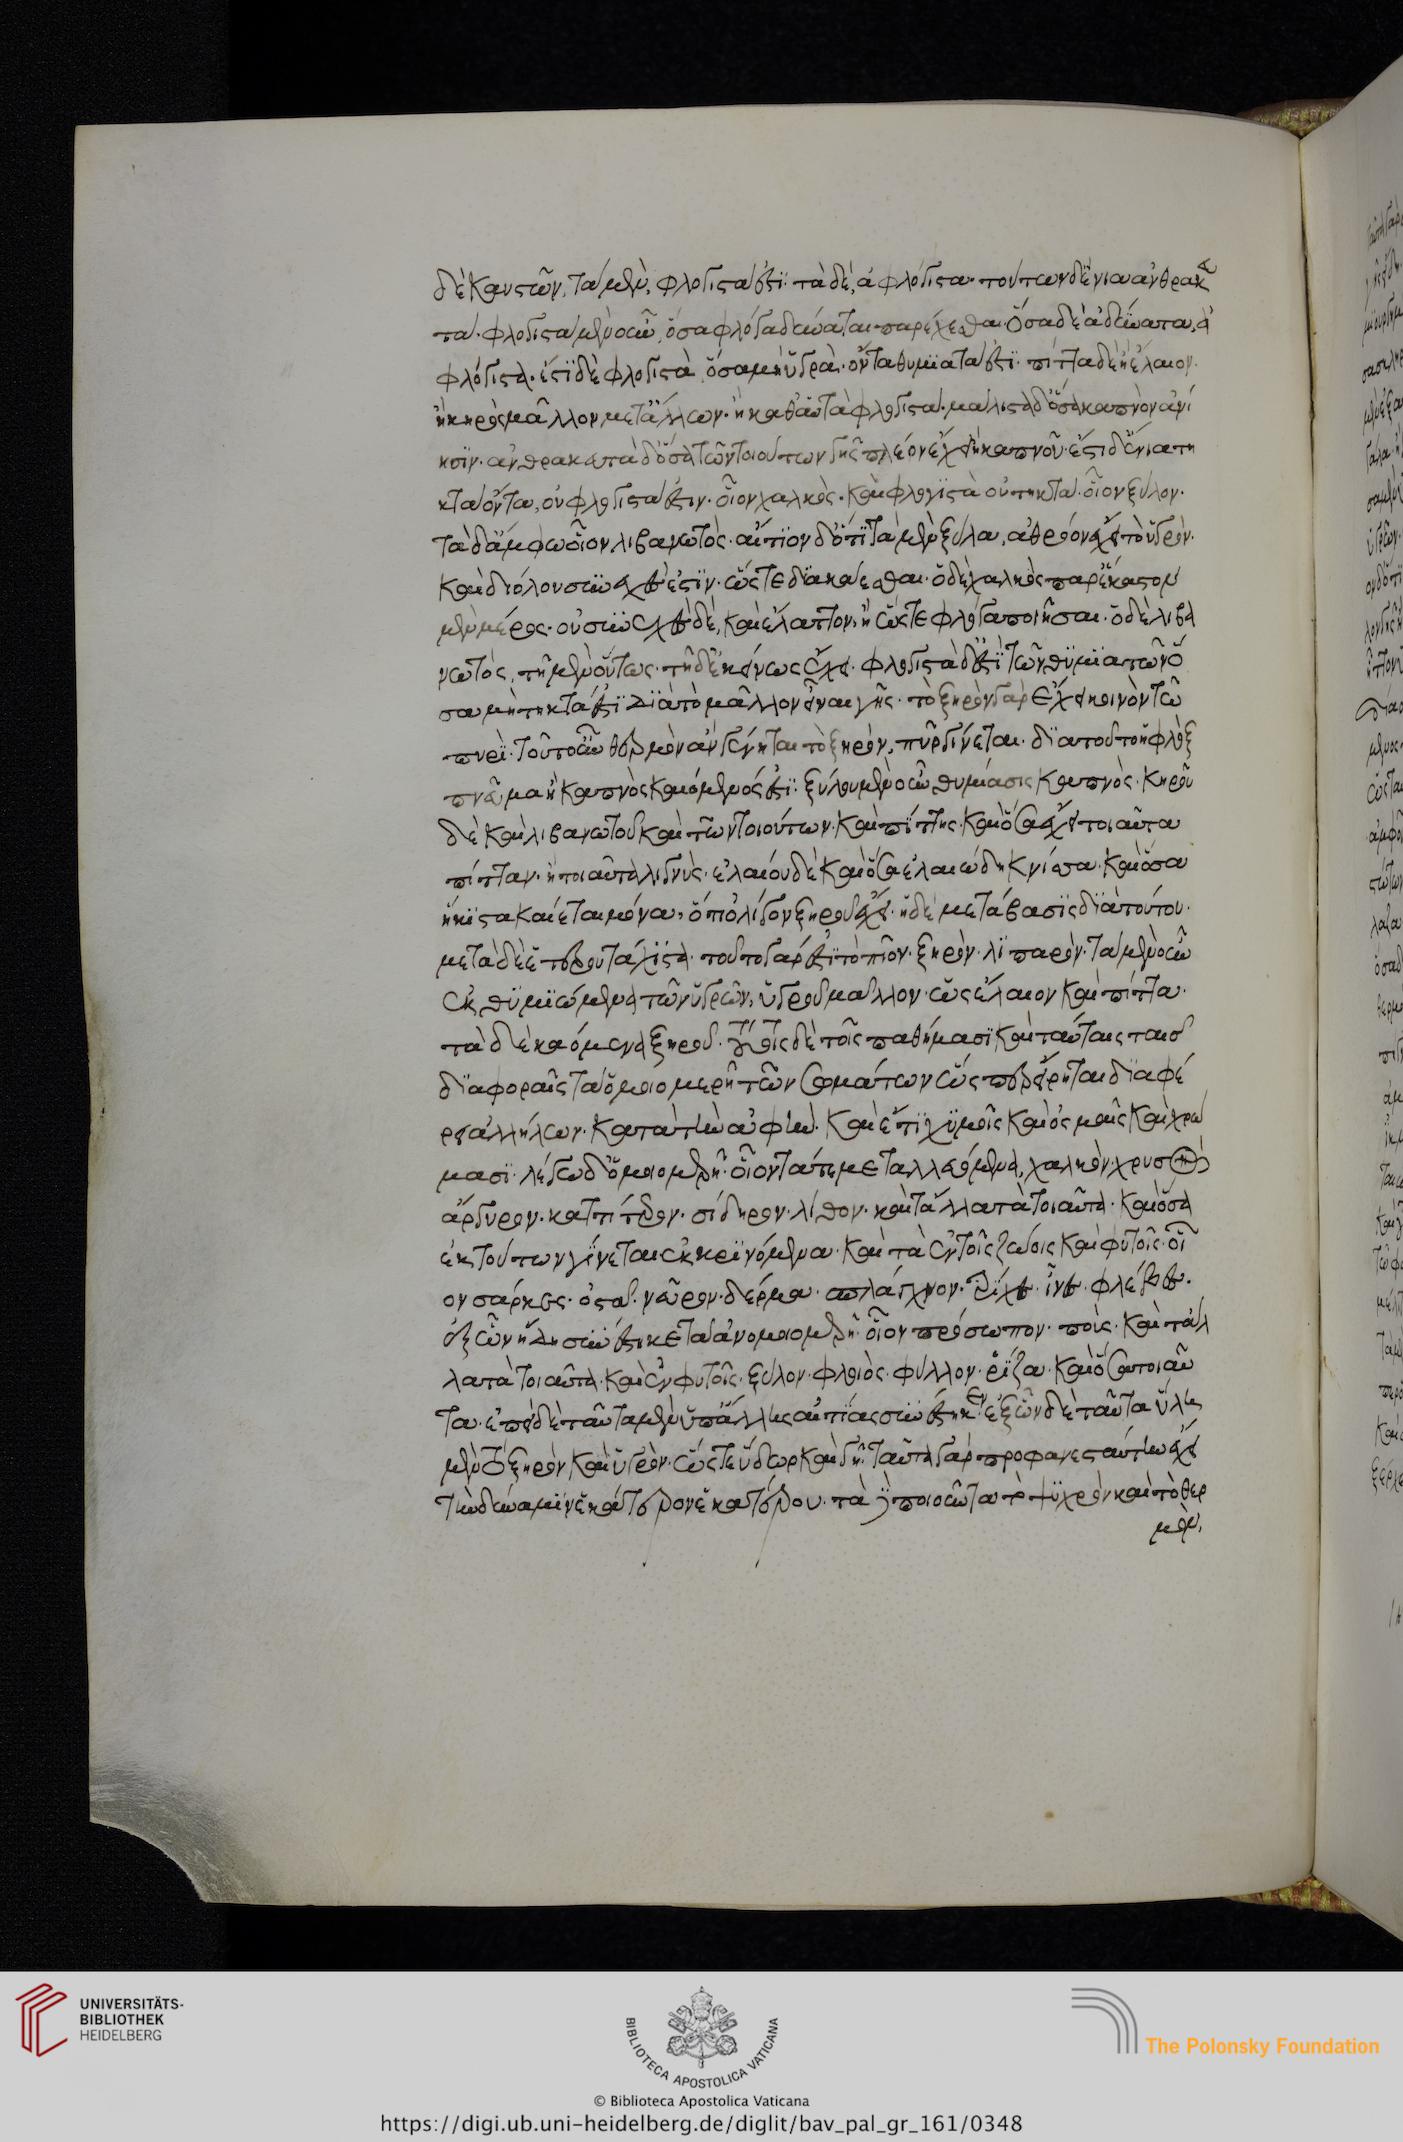 δὲ καυστῶν, τὰ μὲν, φλογιστά ἐστι· τὰ δὲ, ἀφλόγιστα· τούτων δ' ἔνια ἀνθρακευ
τά· φλογιστὰ μὲν οὖν, ὅσα φλόγα δύναται παρέχεσθαι· ὅσα δὲ ἀδύνατα, ἀ
φλόγιστα· ἔστι δὲ φλογιστὰ, ὅσα μὴ ὑγρὰ ὄντα θυμιατά ἐστι· πίττα δὲ ἢ ἔλαιον
ἢ κηρὸς μᾶλλον μετ' ἄλλων· ἢ καθ' αὑτὰ φλογιστά· μάλιστα δ' ὅσα καπνὸν ἀνί
ησιν· ἀνθρακευτὰ δ' ὅσα τῶν τοιούτων γῆς πλέον ἔχει ἢ καπνοῦ· ἔστι δ' ἔνια τη
κτὰ ὄντα, οὐ φλογιστά ἐστιν· οἷον χαλκός· καὶ φλογιστὰ οὐ τηκτά· οἷον ξύλον·
τὰ δ' ἄμφω οἷον λιβανωτός· αἴτιον δ' ὅτι τὰ μὲν ξύλα, ἀθρόον ἔχει τὸ ὑγρόν·
καὶ δι' ὅλου συνεχές ἐστιν· ὥστε διακαίεσθαι· ὁ δὲ χαλκὸς παρ' ἕκαστον
μὲν μέρος· οὐ συνεχὲς δέ, καὶ ἔλαττον, ἢ ὥστε φλόγα ποιῆσαι· ὁ δὲ λιβα
νωτός, τῇ μὲν οὕτως· τῇ δ' ἐκείνως ἔχει· φλογιστὰ δ' ἐστὶ τῶν θυμιατῶν ὅ
σα μὴ τηκτά ἐστι διὰ τὸ μᾶλλον εἶναι γῆς· τὸ ξηρὸν γὰρ ἔχει κοινὸν τῷ
πυρί· τοῦτο οὖν θερμὸν ἂν γένηται τὸ ξηρόν, πῦρ γίνεται· διὰ τοῦτο ἡ φλὸξ
πνεῦμα ἢ καπνὸς καιόμενός ἐστι· ξύλου μὲν οὖν θυμίασις καπνός· κηροῦ
δὲ καὶ λιβανωτοῦ καὶ τῶν τοιούτων· καὶ πίττης· καὶ ὅσα ἔχει τοιαῦτα
πίτταν· ἢ τοιαῦτα λιγνύς· ἐλαίου δὲ καὶ ὅσα ἐλαιώδη κνίσσα· καὶ ὅσα
ἥκιστα καίεται μόνα, ὅτι ὀλίγον ξηροῦ ἔχει· ἡ δὲ μετάβασις διὰ τούτου·
μετὰ δὲ ἑτέρου τάχιστα· τοῦτο γάρ ἐστι τὸ πῖον· ξηρὸν λιπαρόν· τὰ μὲν οὖν
ἐκθυμιώμενα τῶν ὑγρῶν, ὑγροῦ μᾶλλον· ὡς ἔλαιον καὶ πίττα·
τὰ δὲ καόμενα ξηροῦ. τούτοις δὲ τοῖς παθήμασι καὶ ταύταις ταῖς
διαφοραῖς τὰ ὁμοιομερῆ τῶν σωμάτων ὥσπερ εἴρηται διαφέ
ρει ἀλλήλων· κατὰ τὴν ἁφήν· καὶ ἔτι χυμοῖς καὶ ὀσμαῖς καὶ χρώ
μασι· λέγω δ' ὁμοιομερῆ· οἷον τά τε μεταλλευόμενα, χαλκὸν χρυσὸν
ἄργυρον· καττίτερον· σίδηρον· λίθον· καὶ τἄλλα τὰ τοιαῦτα· καὶ ὅσα
ἐκ τούτων γίνεται ἐκκρινόμενα· καὶ τὰ ἐν τοῖς ζώοις καὶ φυτοῖς· οἷ
ον σάρκες· ὀστᾶ· νεῦρον· δέρμα· σπλάγχνον· τρίχες· ἶνες· φλέβες·
ἐξ ὧν ἤδη συνέστηκε τὰ ἀνομοιομερῆ· οἷον πρόσωπον· ποῦς· καὶ τἄλ
λα τὰ τοιαῦτα· καὶ ἐν φυτοῖς· ξύλον· φλοιὸς· φύλλον· ῥίζα· καὶ ὅσα τοιαῦ
τα· ἐπεὶ δὲ ταῦτα μὲν ὑπ' ἄλλης αἰτίας συνέστηκεν· ἐξ ὧν δὲ ταῦτα ὕλη
μὲν τὸ ξηρὸν καὶ ὑγρόν· ὥστε ὕδωρ καὶ γῆ· ταῦτα γὰρ προφανεστάτην ἔχει
τὴν δύναμιν ἑκάτερον ἑκατέρου· τὰ δὲ ποιοῦντα τὸ ψυχρὸν καὶ τὸ θερ
μόν,
UNIVERSITÄTS-
BIBLIOTHEK
HEIDELBERG
BIBLIOTECA APOSTOLICA VATICANA
© Biblioteca Apostolica Vaticana
The Polonsky Foundation
https://digi.ub.uni-heidelberg.de/diglit/bav_pal_gr_161/0348